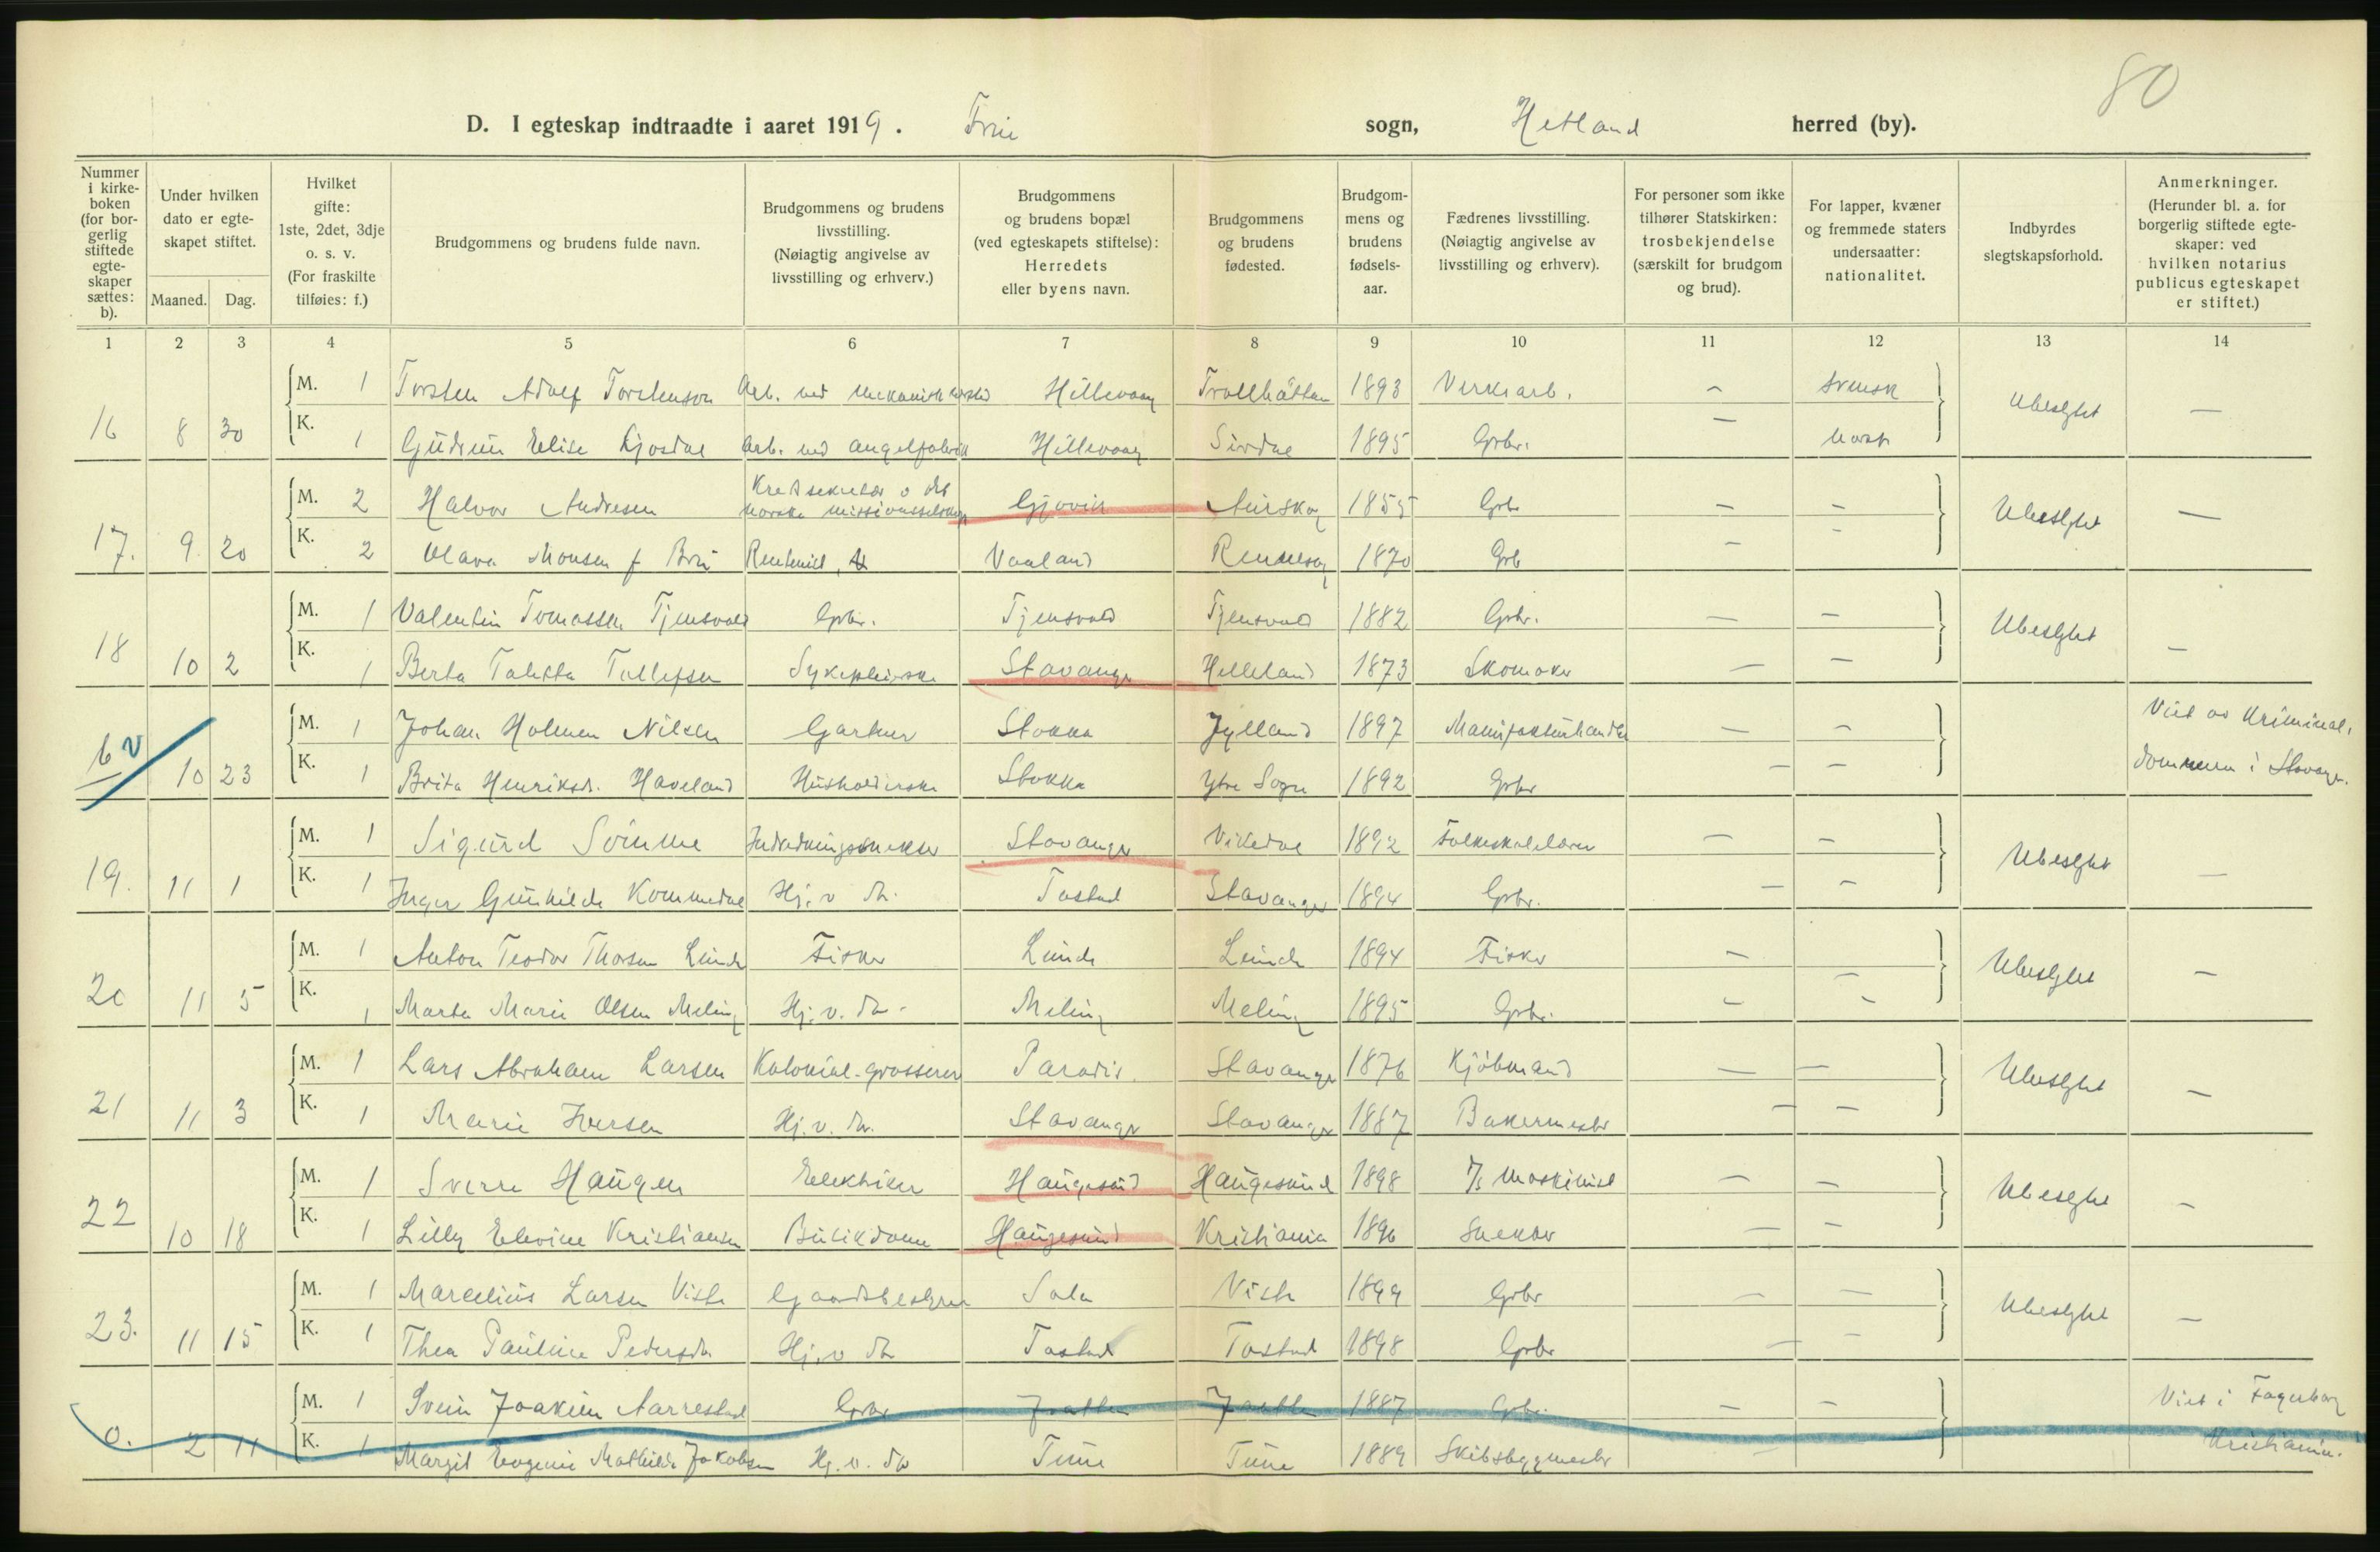 80
D. I egteskap indtraadte i aaret 1919. Frue sogn, Hetland herred (by).
Nummer i kirke-boken (for bor-gerlig stiftede egte-skaper sættes: b).
Under hvilken dato er egte-skapet stiftet.
Maaned. Dag.
Hvilket gifte: 1ste, 2det, 3dje o. s. v. (For fraskilte tilføies: f.)
Brudgommens og brudens fulde navn.
Brudgommens og brudens livsstilling. (Nøiagtig angivelse av livsstilling og erhverv.)
Brudgommens og brudens bopæl (ved egteskapets stiftelse): Herredets eller byens navn.
Brudgommens og brudens fødested.
Brudgom-mens og brudens fødsels-aar.
Fædrenes livsstilling. (Nøiagtig angivelse av livsstilling og erhverv).
For personer som ikke tilhører Statskirken: trosbekjendelse (særskilt for brudgom og brud).
For lapper, kvæner og fremmede staters undersaatter: nationalitet.
Indbyrdes slegtskapsforhold.
Anmerkninger. (Herunder bl. a. for borgerlig stiftede egte-skaper: ved hvilken notarius publicus egteskapet er stiftet.)
1 2 3 4 5 6 7 8 9 10 11 12 13 14
M. 1 Torsten Adolf Torstenson Arb. ved mekanisk Hillevaag Trollhättan 1893 Verksarb. — svensk
16 8 30 Ubeslgtet —
K. 1 Gudrun Elise Kjosdal Arb. ved angelfabrik Hillevaag Sirdal 1895 Grbr. — norsk
M. 2 Halvor Andresen Kretssekretær v det norske missionsselskap Gjøvik Aurskog 1855 Grb. — —
17. 9 20 Ubeslgtet —
K. 2 Olava Monsen f Bru Rentenist Vaaland Rennesøy 1870 Grb — —
M. 1 Valentin Tomassen Tjensvold Grbr. Tjensvold Tjensvold 1882 Grbr. — —
18 10 2 Ubeslgtet —
K. 1 Berta Taletta Tollefsen Sykepleierske Stavanger Helleland 1873 Skomaker — —
M. 1 Johan Holmen Nilsen Gartner Stokka Jylland 1897 Manufakturhandler — — Viet av Kriminal-
6 v 10 23 dommeren i Stavanger.
K. 1 Brita Henriksdr. Haveland Husholderske Stokka Ytre Sogn 1892 Grbr — —
M. 1 Sigurd Svinne Indredningssnekker Stavanger Vikedal 1892 Folkeskolelærer — —
19. 11 1 Ubeslgtet —
K. 1 Inger Gunhilde Kommedal Hj. v dr. Tastad Stavanger 1894 Grbr. — —
M. 1 Anton Teodor Thorsen Lunde Fisker Lunde Lunde 1894 Fisker — —
20 11 5 Ubeslgtet —
K. 1 Marta Marie Olsen Meling Hj. v. dr. Meling Meling 1895 Grbr. — —
M. 1 Lars Abraham Larsen Kolonial-grosserer Paradis. Stavanger 1876 Kjøbmand — —
21 11 3 Ubeslgtet —
K. 1 Marie Iversen Hj. v. dr. Stavanger Stavanger 1887 Bakermester — —
M. 1 Sverre Haugen Elektriker Haugesund Haugesund 1898 Maskinist — —
22 10 18 Ubeslgtet —
K. 1 Lilly Elvine Kristiansen Butikdame Haugesund Kristiania 1896 Snekker — —
M. 1 Marcelius Larsen Viste Gaardsbestyrer Sola Viste 1899 Grbr — —
23. 11 15 Ubeslgtet —
K. 1 Thea Pauline Pedersdr. Hj. v dr Tastad Tastad 1898 Grbr — —
M. 1 Svein Joakim Aarrestad Grbr Jaatten Jaatten 1887 Grbr. — — Viet i Fagerborg
0. 2 11 Kristiania.
K. 1 Margit Eugenie Mathilde Jakobsen Hj. v. dr Tune Tune 1889 Skibsbygmester — —